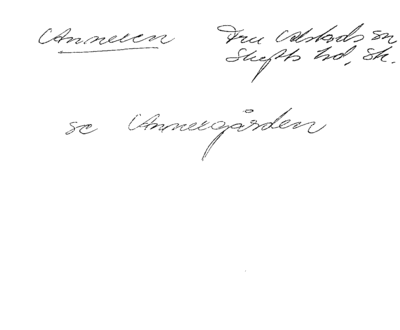 Annexen Fru Alstads sn
Skytts hd, Sk.
se Annexgården